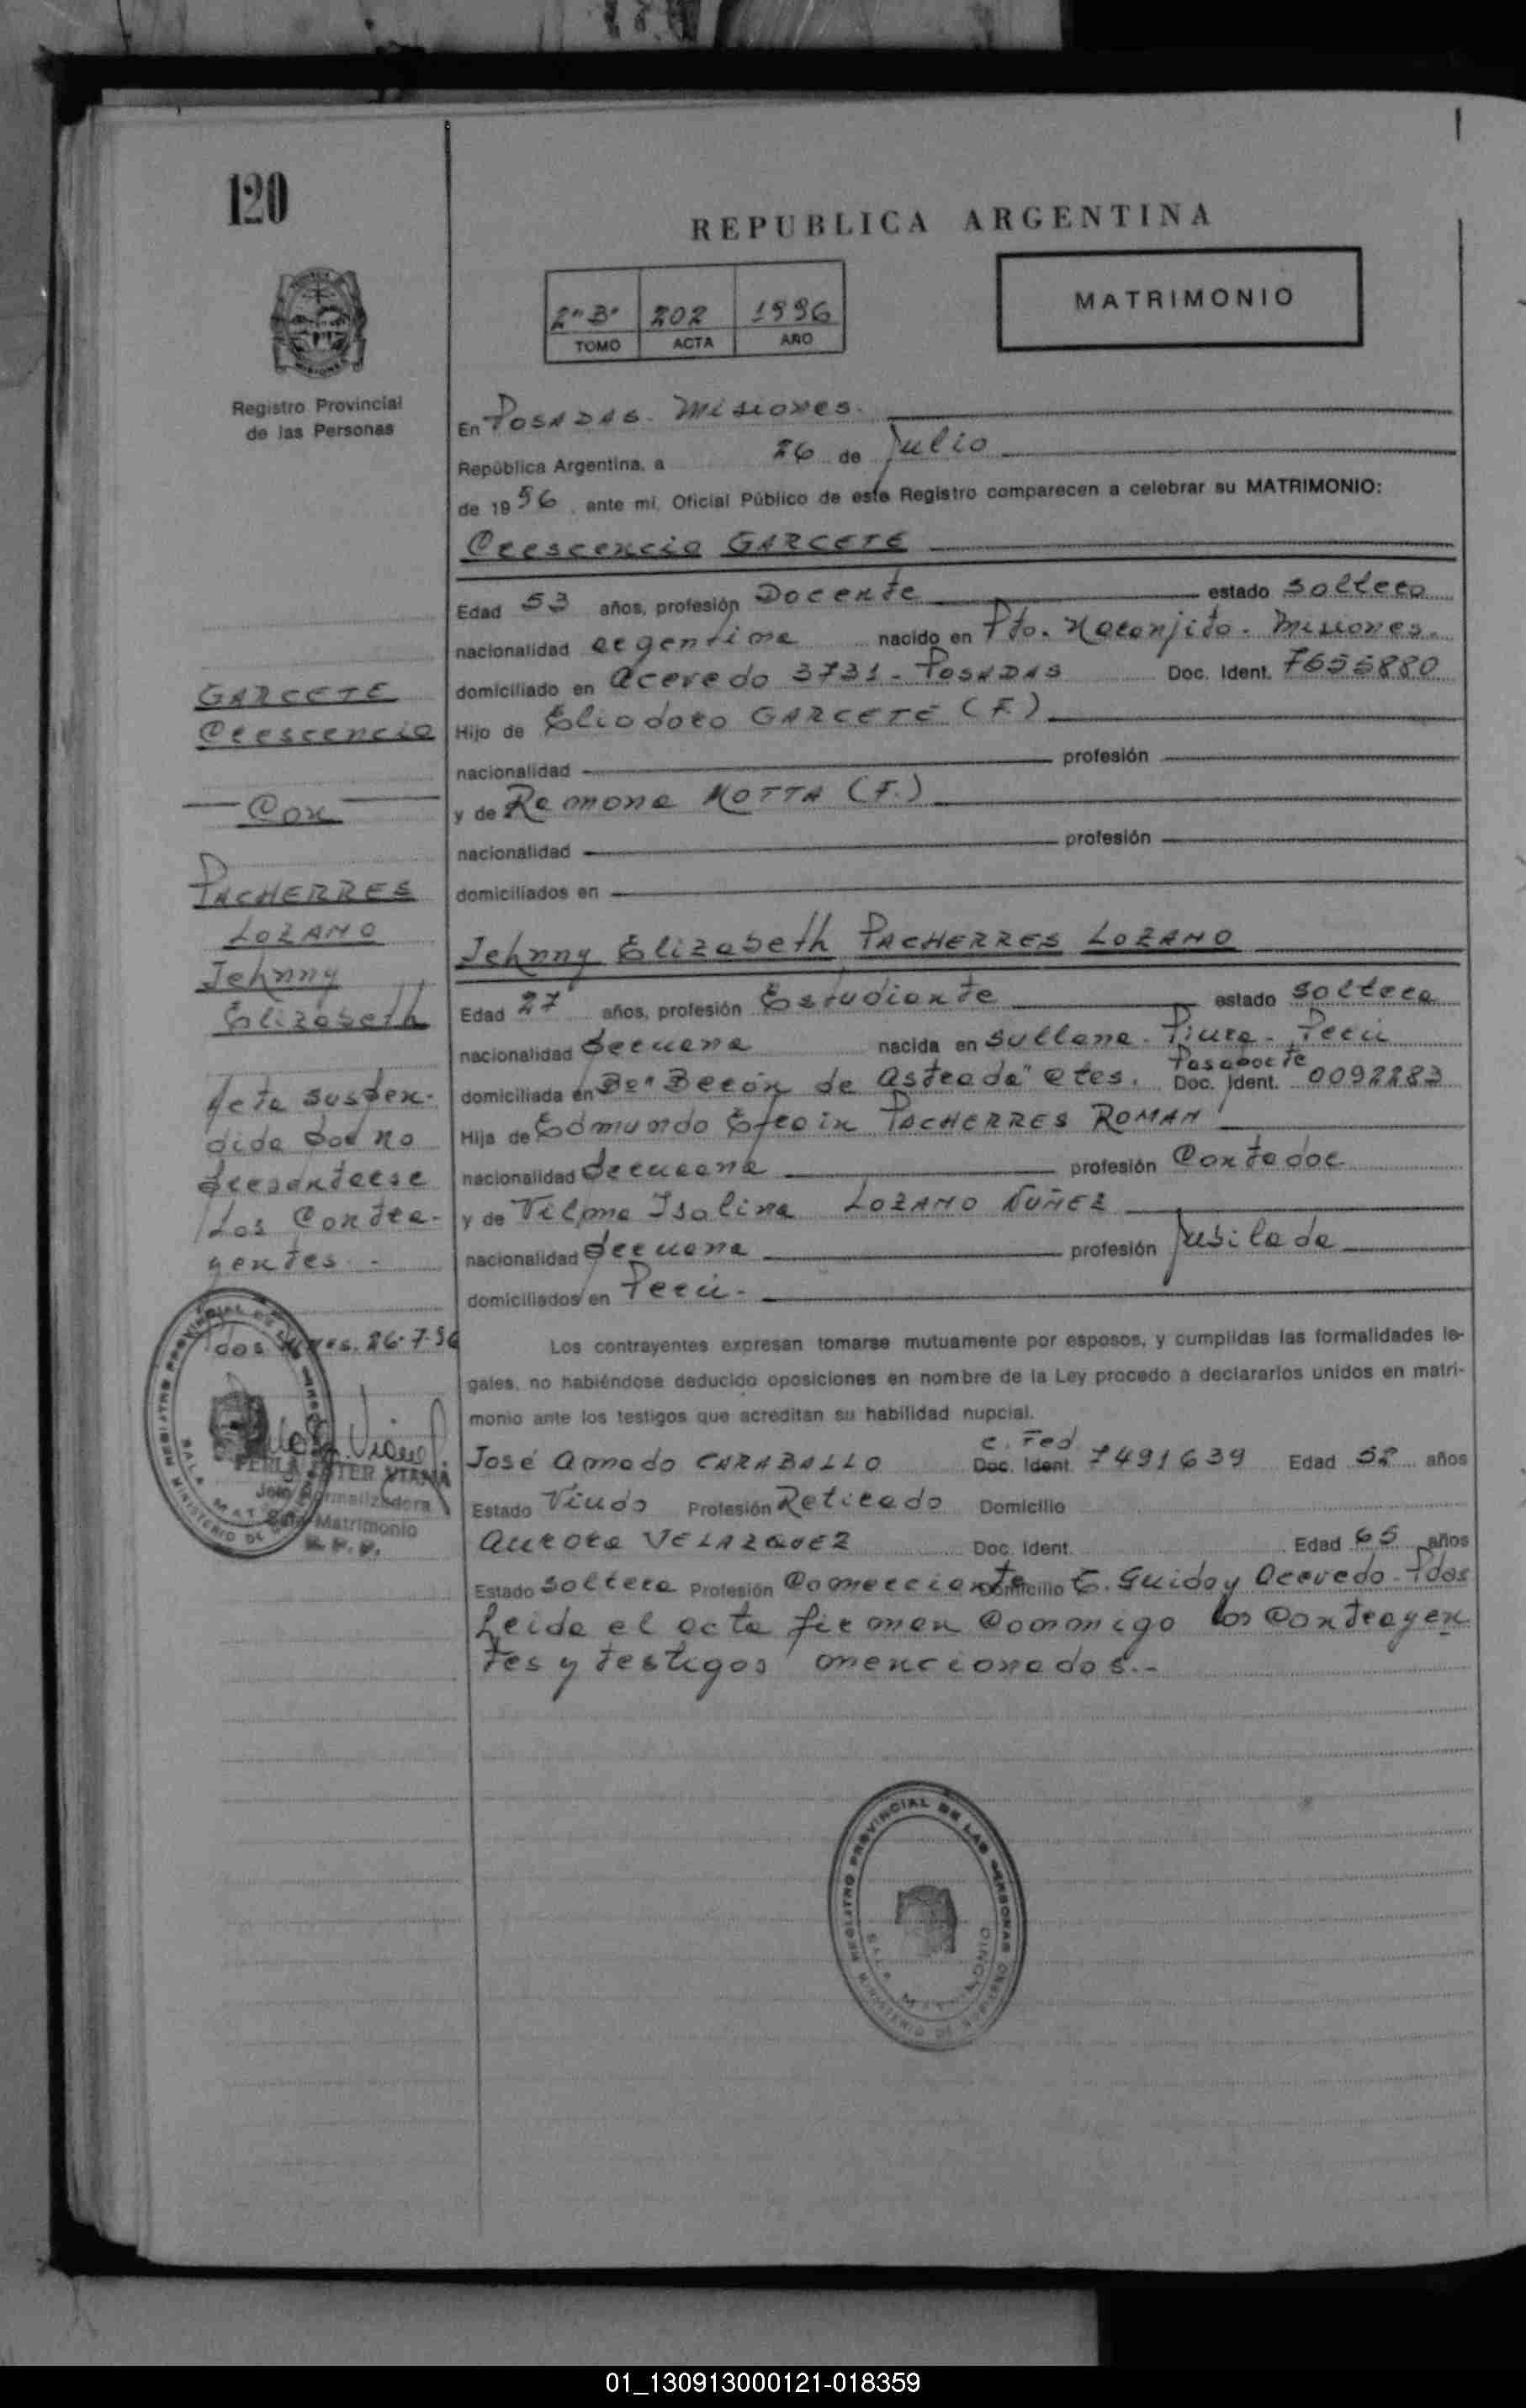 120
REPUBLICA ARGENTINA
2º "B" 202 1996
TOMO ACTA AÑO
MATRIMONIO
Registro Provincial
de las Personas
En POSADAS - Misiones.
República Argentina, a 26 de Julio
de 1996, ante mí, Oficial Público de este Registro comparecen a celebrar su MATRIMONIO:
Crescencio GARCETE
Edad 53 años, profesión Docente estado soltero
nacionalidad argentina nacido en Pto. Naranjito - Misiones.
domiciliado en Acevedo 3731 - POSADAS Doc. Ident. 7655880
Hijo de Eliodoro GARCETE (F.)
nacionalidad profesión
y de Ramona MOTTA (F.)
nacionalidad profesión
domiciliados en
Jehnny Elizabeth PACHERRES LOZANO
Edad 27 años, profesión Estudiante estado soltera
nacionalidad peruana nacida en Sullana - Piura - Perú
domiciliada en Bº "Berón de Astrada" Ctes. Pasaporte Doc. Ident. 0092283
Hija de Edmundo Efrain PACHERRES ROMAN
nacionalidad peruana profesión Contador
y de Vilma Isolina LOZANO NUÑEZ
nacionalidad peruana profesión Jubilada
domiciliados en Perú.
Los contrayentes expresan tomarse mutuamente por esposos, y cumplidas las formalidades le-
gales, no habiéndose deducido oposiciones en nombre de la Ley procedo a declararlos unidos en matri-
monio ante los testigos que acreditan su habilidad nupcial.
José Amado CARABALLO C. Fed. Doc. Ident. 7491639 Edad 52 años
Estado Viudo Profesión Retirado Domicilio
Aurora VELAZQUEZ Doc. Ident. Edad 65 años
Estado soltera Profesión Comerciante Domicilio T. Guido y Acevedo - Pdas
Leida el acta firman conmigo los contrayen
tes y testigos mencionados.-
GARCETE
Crescencio
Con
PACHERRES
LOZANO
Jehnny
Elizabeth
Acta suspen-
dida por no
presentarse
los contra-
yentes.-
Pdas. Mnes. 26-7-96
PERLA ESTER VIANA
Jefa Normalizadora
Sala Matrimonio
R.P.P.
REGISTRO PROVINCIAL DE LAS PERSONAS
SALA MATRIMONIO
MINISTERIO DE GOBIERNO
01_130913000121-018359